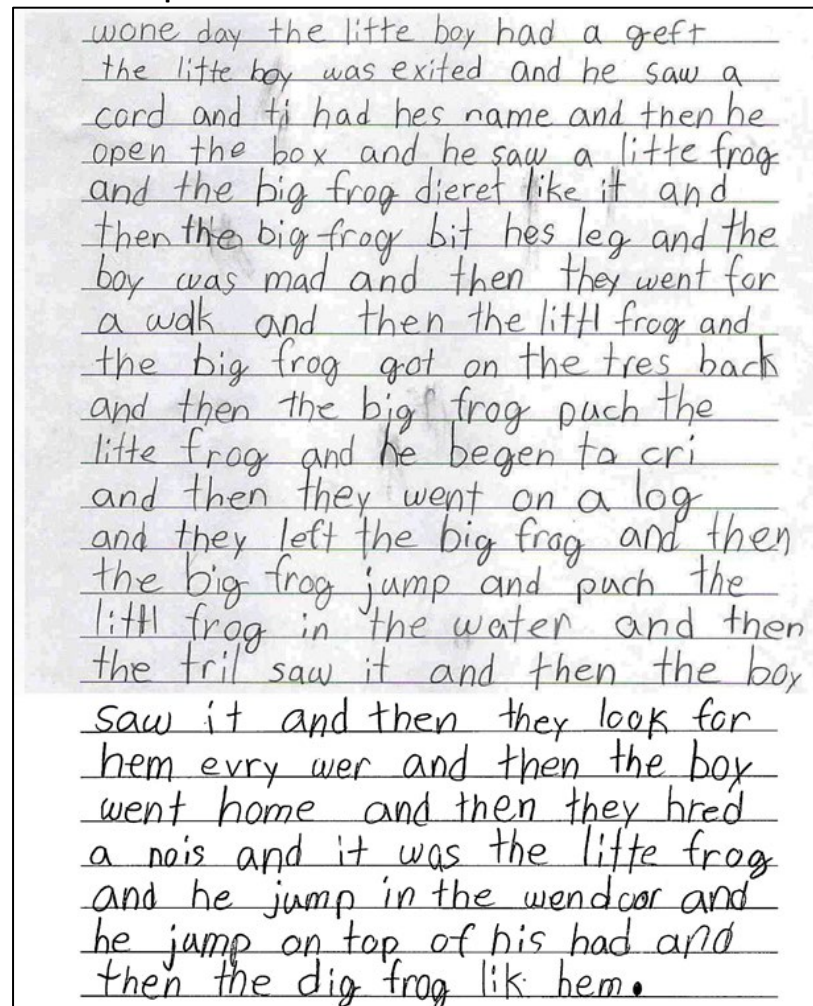 wone day the litte boy had a geft
the litte boy was exited and he saw a
cord and ti had hes name and then he
open the box and he saw a litte frog
and the big frog dieret like it and
then the big frog bit hes leg and the
boy was mad and then they went for
a walk and then the littl frog and
the big frog got on the tres back
and then the big frog puch the
litte frog and he begen to cri
and then they went on a log
and they left the big frog and then
the big frog jump and puch the
littl frog in the water and then
the tril saw it and then the boy
saw it and then they look for
hem evry wer and then the boy
went home and then they hred
a nois and it was the litte frog
and he jump in the wendoor and
he jump on top of his had and
then the dig frog lik hem.